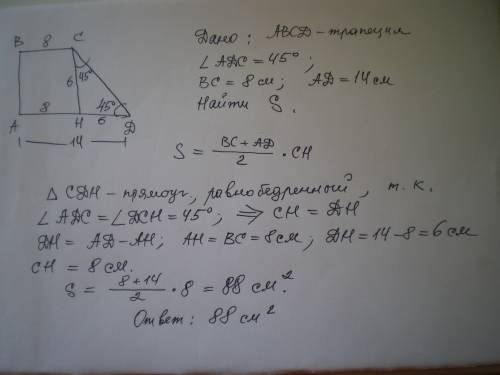 B 8 C
6 45°
8 45°
A H 6 D
14
Дано: ABCD - трапеция
∠ADC = 45°;
BC = 8 см; AD = 14 см
Найти S.
S = (BC + AD)/2 · CH
△ CDH - прямоуг, равнобедренный, т.к.
∠ADC = ∠DCH = 45°; ⇒ CH = DH
DH = AD - AH; AH = BC = 8 см; DH = 14 - 8 = 6 см
CH = 8 см.
S = (8 + 14)/2 · 8 = 88 см².
Ответ: 88 см²